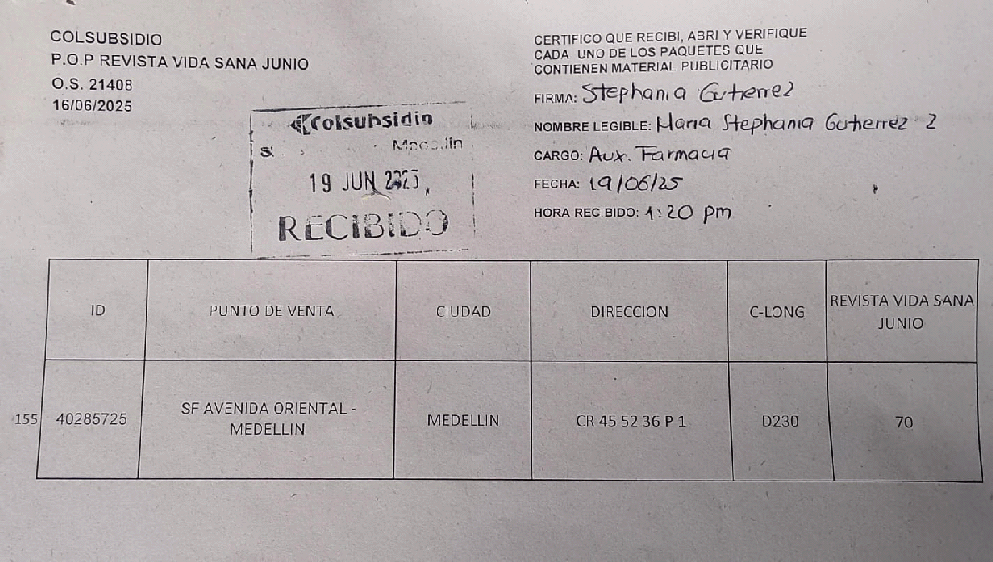 COLSUBSIDIO
P.O.P REVISTA VIDA SANA JUNIO
O.S. 21408
16/06/2025
CERTIFICO QUE RECIBI, ABRI Y VERIFIQUE
CADA UNO DE LOS PAQUETES QUE
CONTIENEN MATERIAL PUBLICITARIO
FIRMA: Stephania Gutierrez
NOMBRE LEGIBLE: Maria Stephania Gutierrez Z
CARGO: Aux. Farmacia
FECHA: 19/06/25
HORA RECIBIDO: 1:20 pm
Colsubsidio
Medellin
19 JUN 2025
RECIBIDO
ID PUNTO DE VENTA CIUDAD DIRECCION C-LONG REVISTA VIDA SANA JUNIO
155 40285725 SF AVENIDA ORIENTAL - MEDELLIN MEDELLIN CR 45 52 36 P 1 D230 70